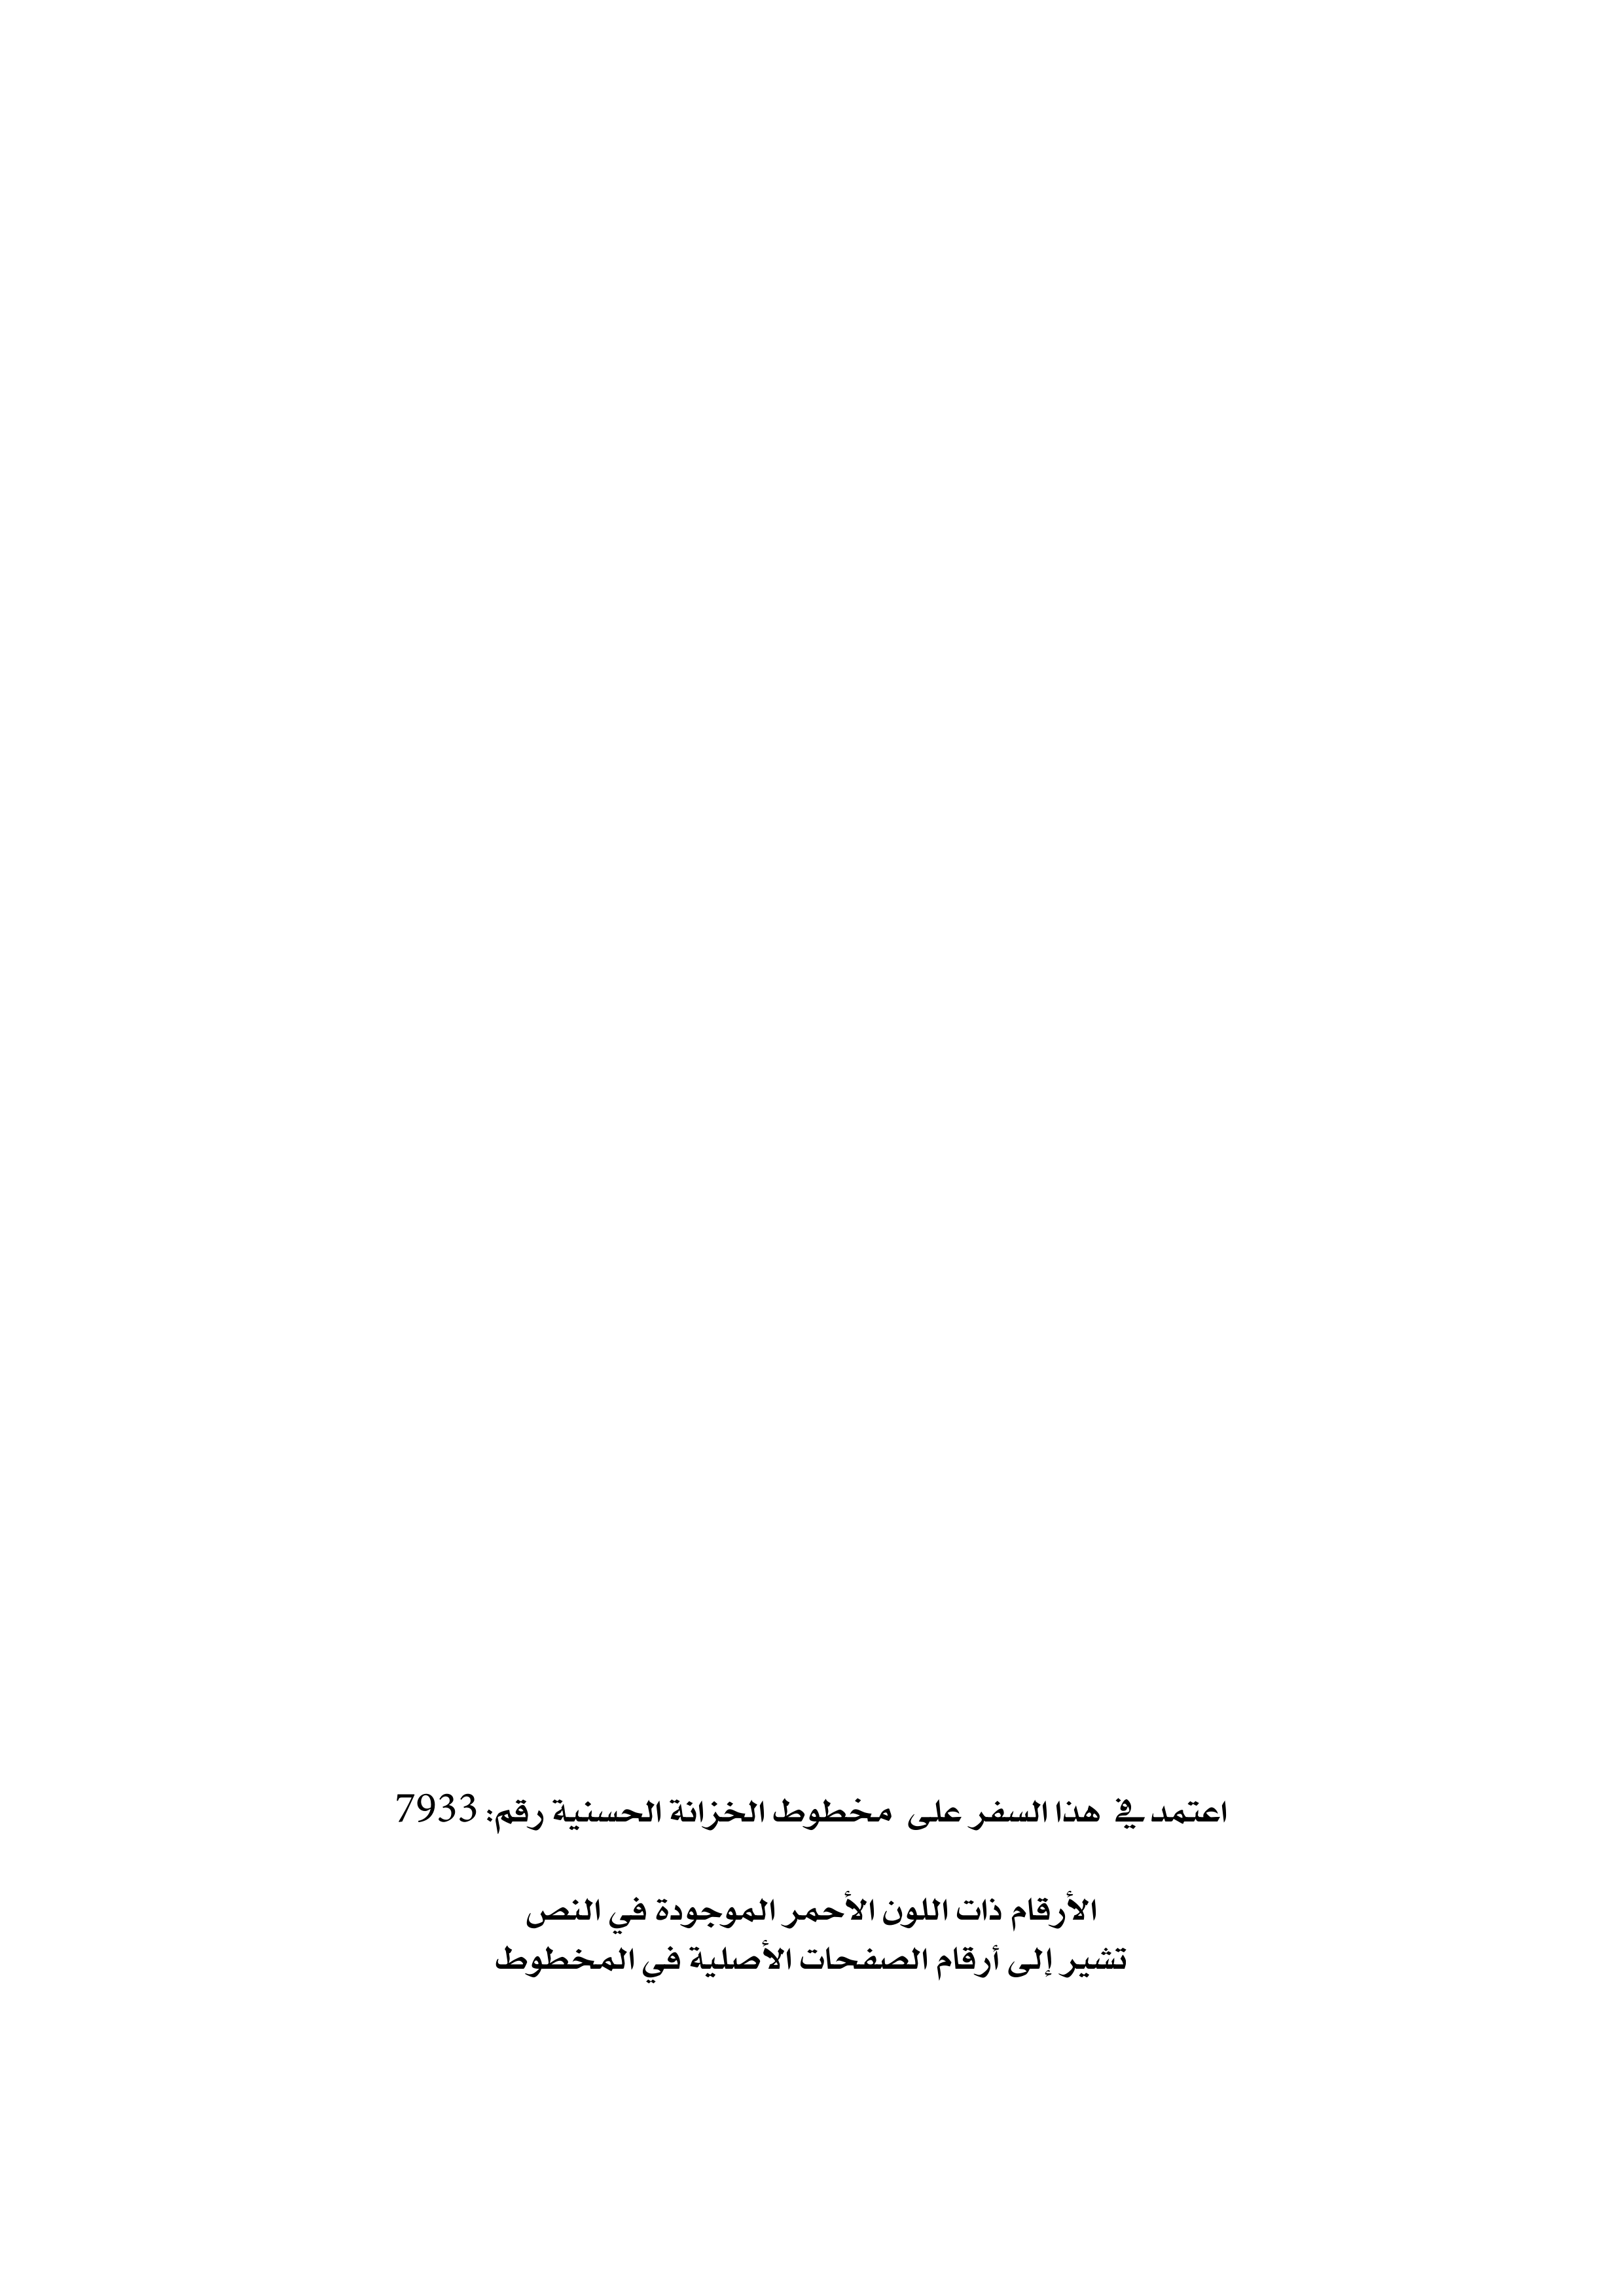 اعتمد في هذا السفر على مخطوط الخزانة الحسنية رقم: 7933
الأرقام ذات اللون الأحمر الموجودة في النص
تشير إلى أرقام الصفحات الأصلية في المخطوط